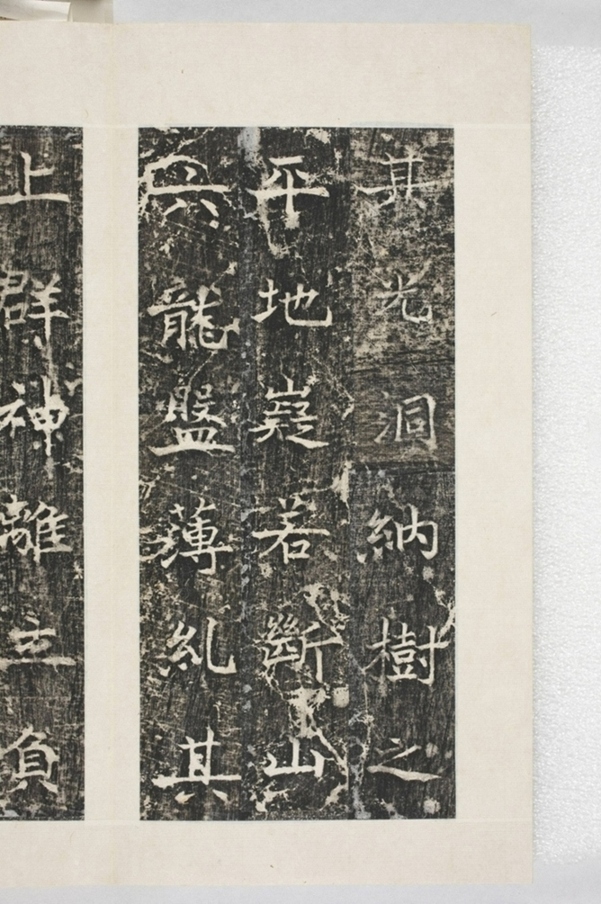 其光洞納樹之
平地嶷若斷山
六龍盤薄糺其
上群神離立負